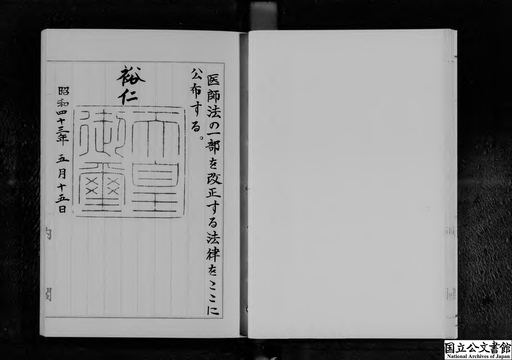 医師法の一部を改正する法律をここに
公布する。
裕仁
天皇
御璽
昭和四十三年五月十五日
内閣
国立公文書館
National Archives of Japan